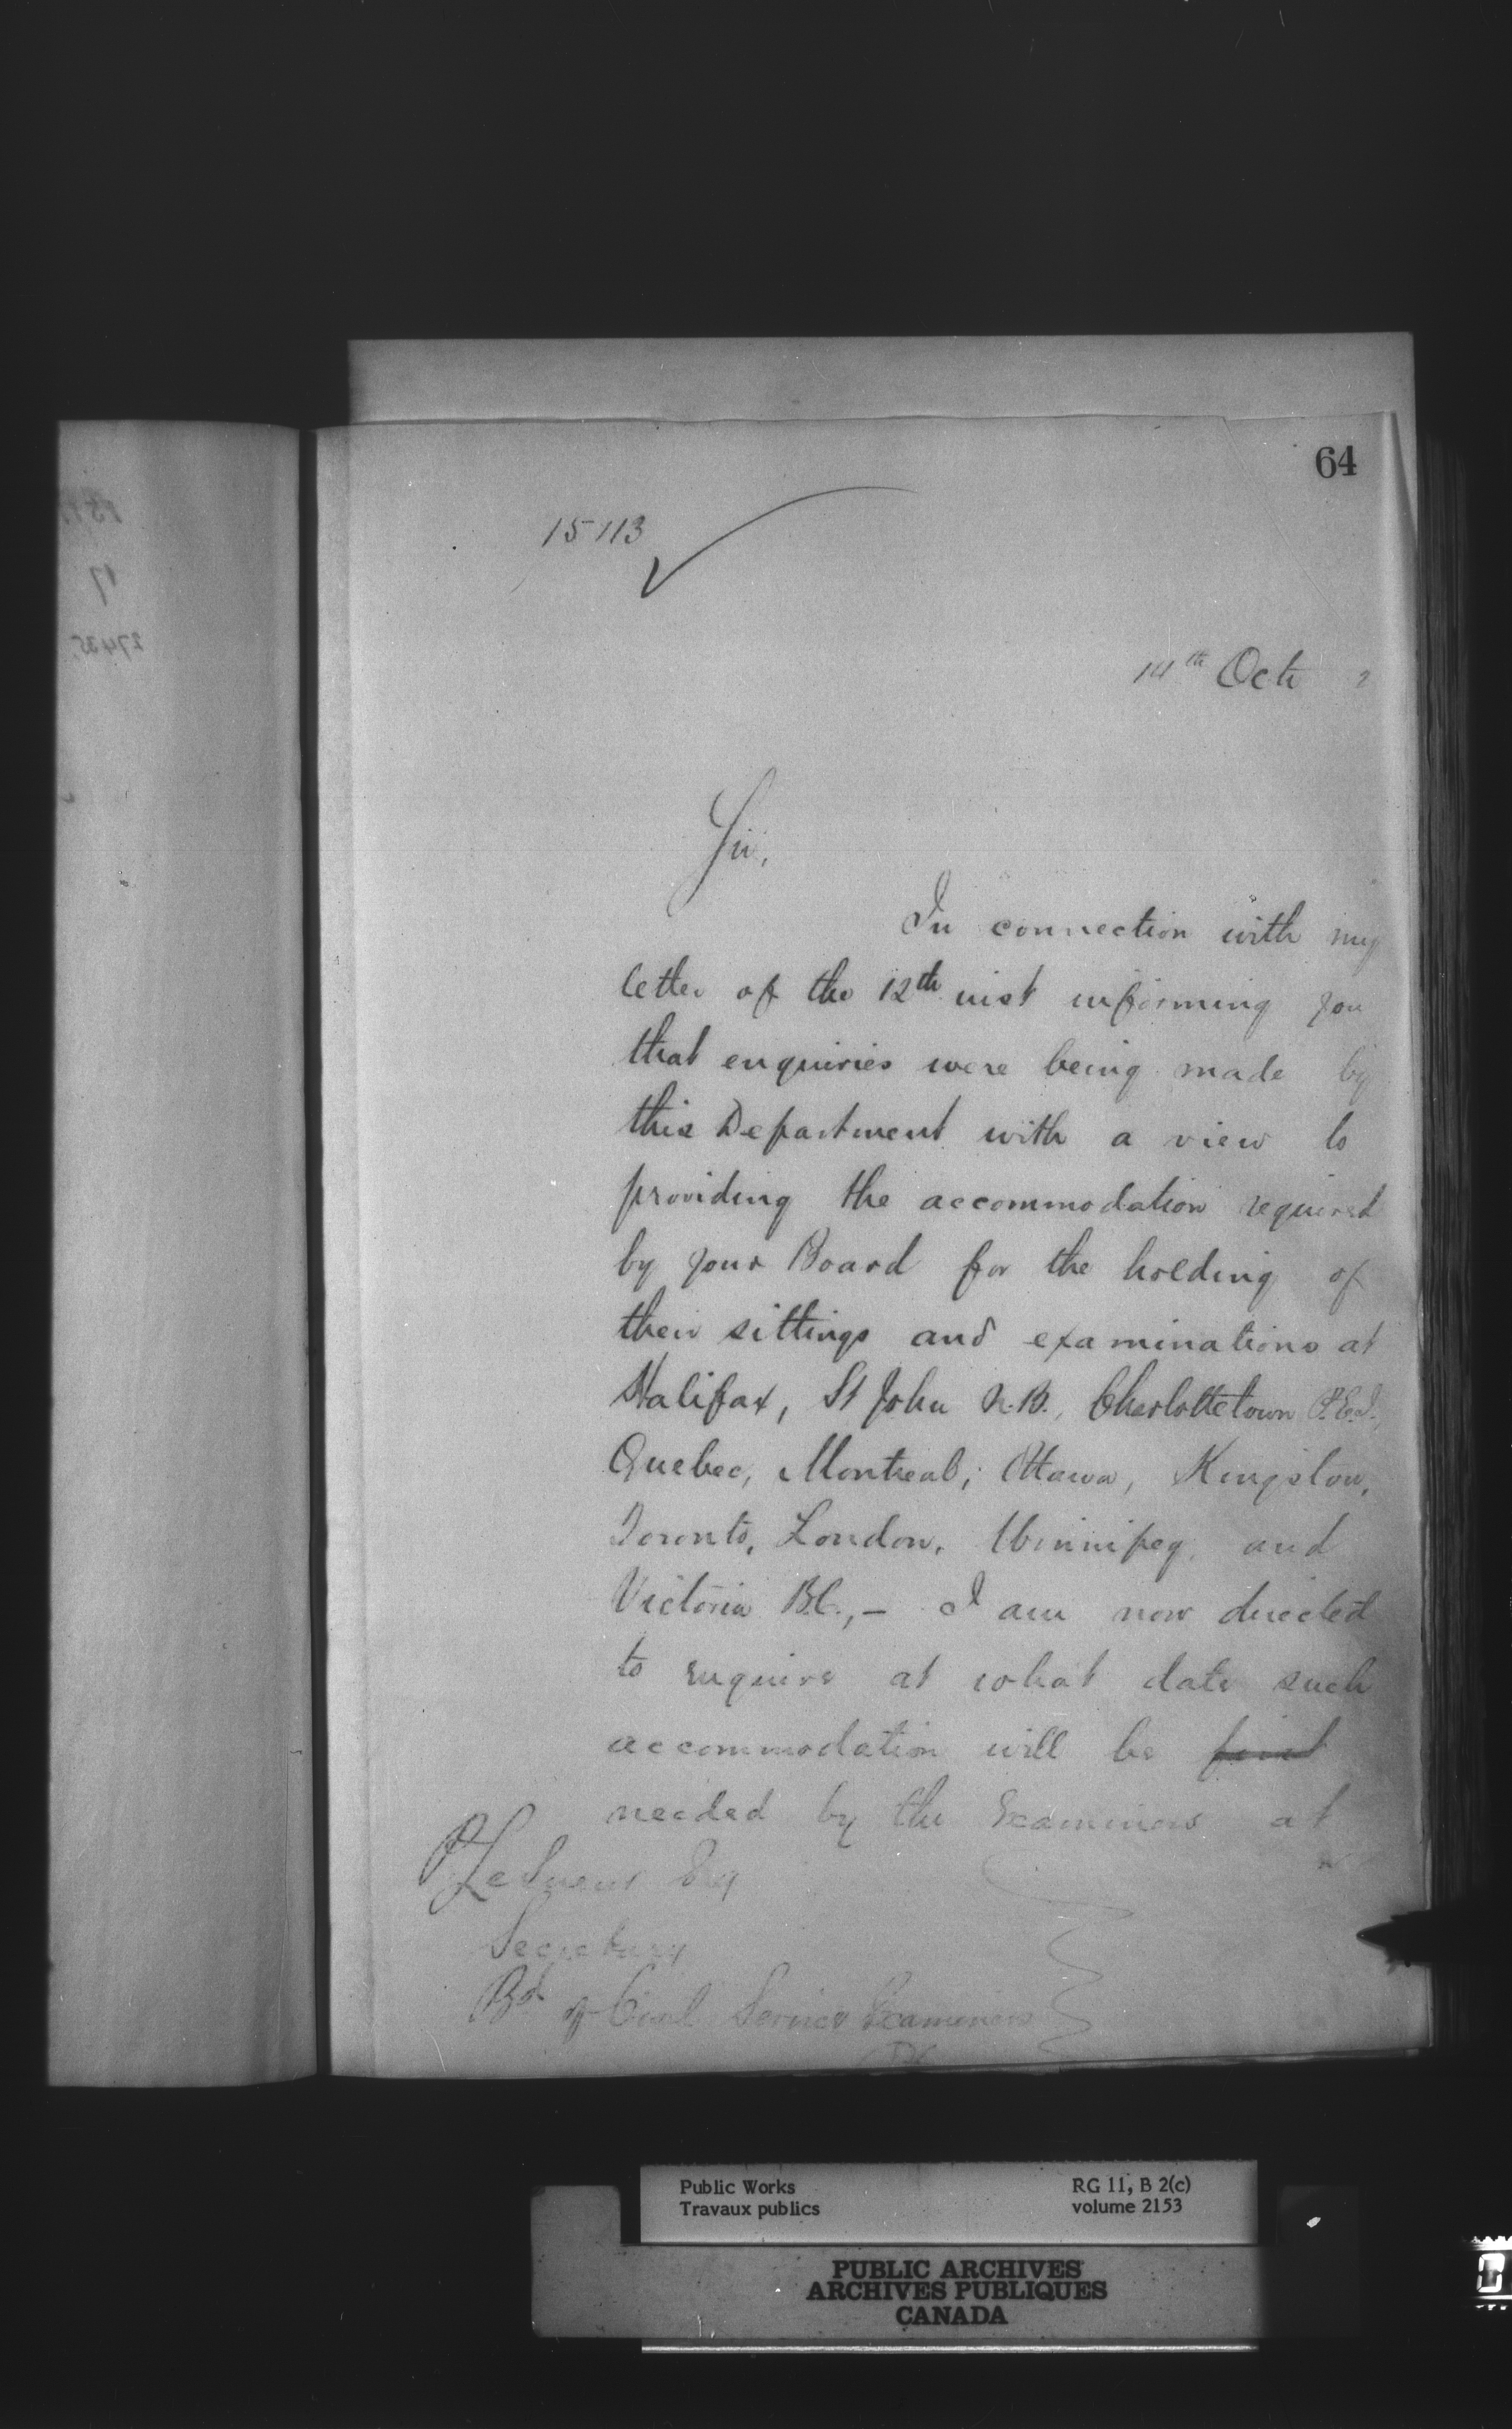 64
15113
14th Oct 2
Sir,
In connection with my
letter of the 12th inst informing you
that enquiries were being made by
this Department with a view to
providing the accommodation required
by your Board for the holding of
their sittings and examinations at
Halifax, St John N.B., Charlottetown P.E.I.,
Quebec, Montreal, Ottawa, Kingston,
Toronto, London, Winnipeg, and
Victoria B.C., - I am now directed
to enquire at what date such
accommodation will be first
needed by the Examiners at
P LeSueur Esq
Secretary
Bd of Civil Service Examiners
Public Works
Travaux publics
RG 11, B 2(c)
volume 2153
PUBLIC ARCHIVES
ARCHIVES PUBLIQUES
CANADA